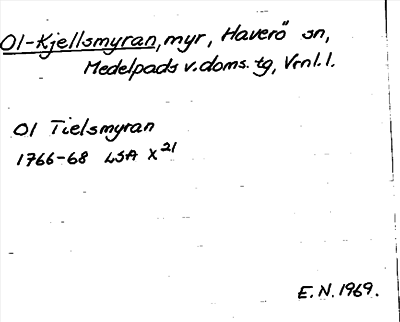 Ol-Kjellsmyran, myr, Haverö sn,
Medelpads v. doms. tg, Vrnl. l.
Ol Tielsmyran
1766-68 LSA X 21
E. N. 1969.